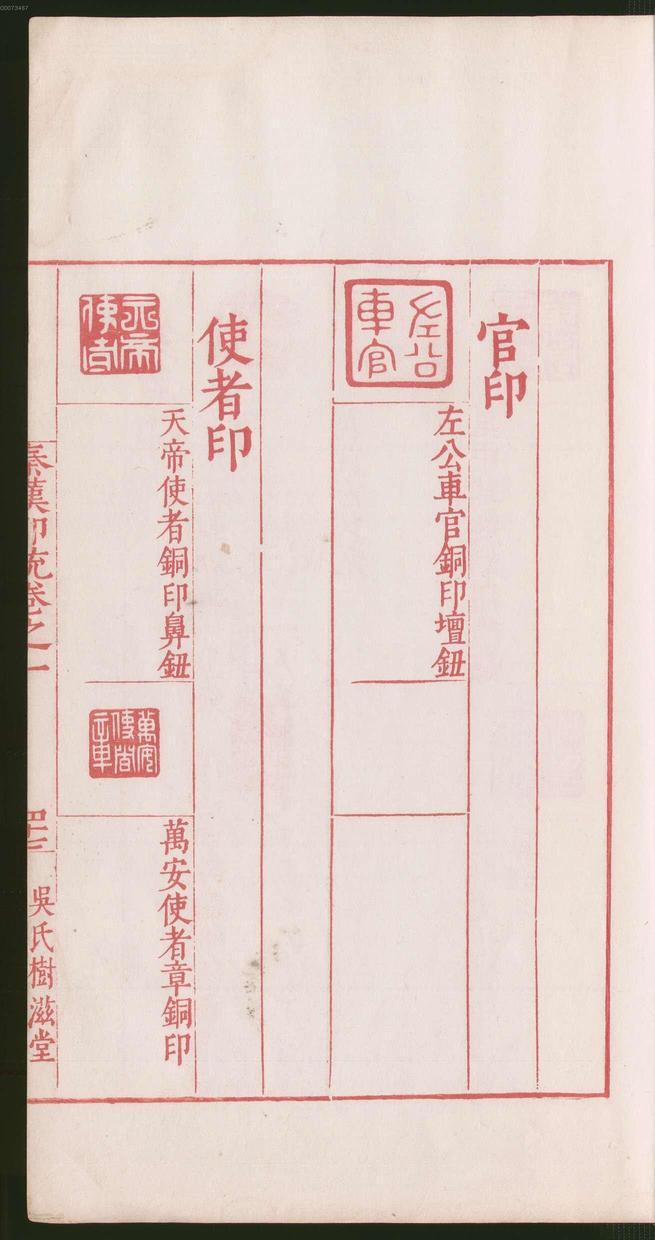 官印
左公車官
左公車官銅印壇鈕
使者印
天帝使者
天帝使者銅印鼻鈕
萬安使者章
萬安使者章銅印
秦漢印統卷之一
四十三
吳氏樹滋堂
00073467